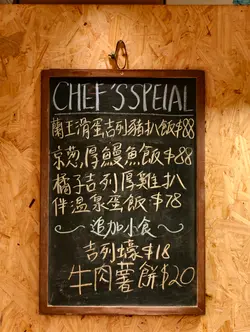 CHEF'S SPEIAL
蘭王滑蛋吉列豬扒飯$88
京葱厚鰻魚飯$88
橘子吉列厚雞扒
伴溫泉蛋飯$78
～追加小食～
吉列蠔$18
牛肉薯餅$20